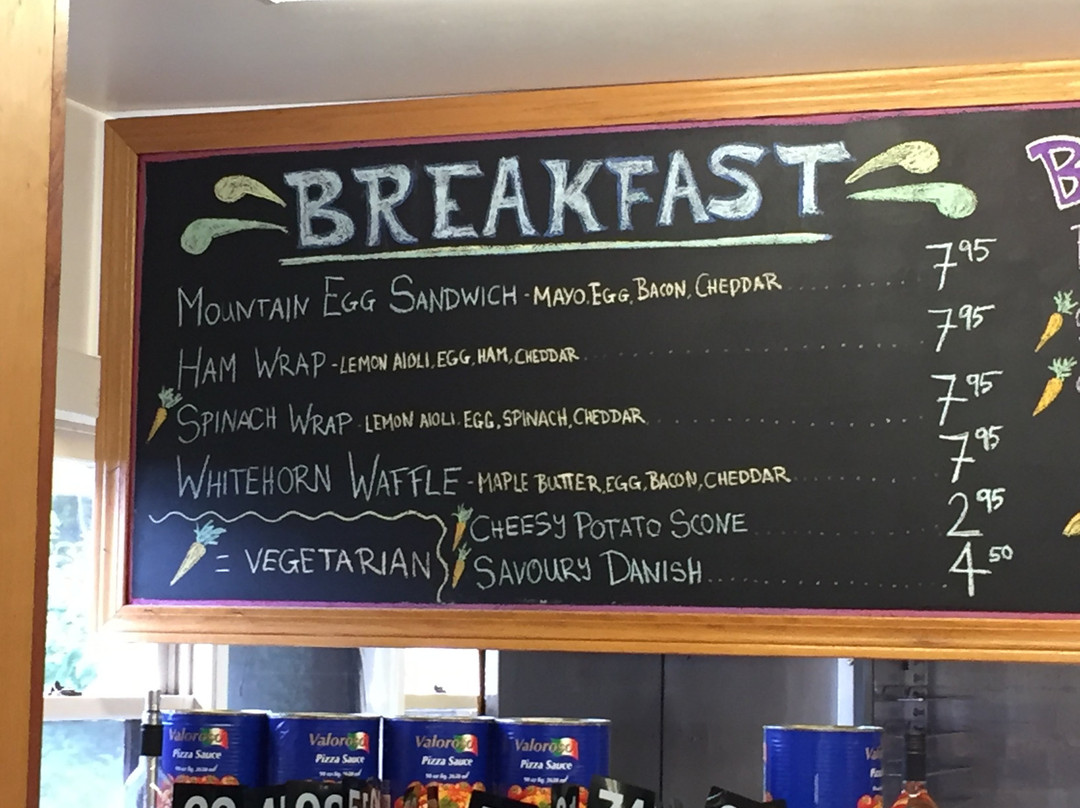 BREAKFAST
MOUNTAIN EGG SANDWICH - MAYO, EGG, BACON, CHEDDAR ........ 7 95
HAM WRAP - LEMON AIOLI, EGG, HAM, CHEDDAR ........ 7 95
SPINACH WRAP - LEMON AIOLI, EGG, SPINACH, CHEDDAR ........ 7 95
WHITEHORN WAFFLE - MAPLE BUTTER, EGG, BACON, CHEDDAR ........ 7 95
CHEESY POTATO SCONE ........ 2 95
= VEGETARIAN
SAVOURY DANISH ........ 4 50
B
Valoroso
Pizza Sauce
Valoroso
Pizza Sauce
Valoroso
Pizza Sauce
Valoroso
Pizza Sauce